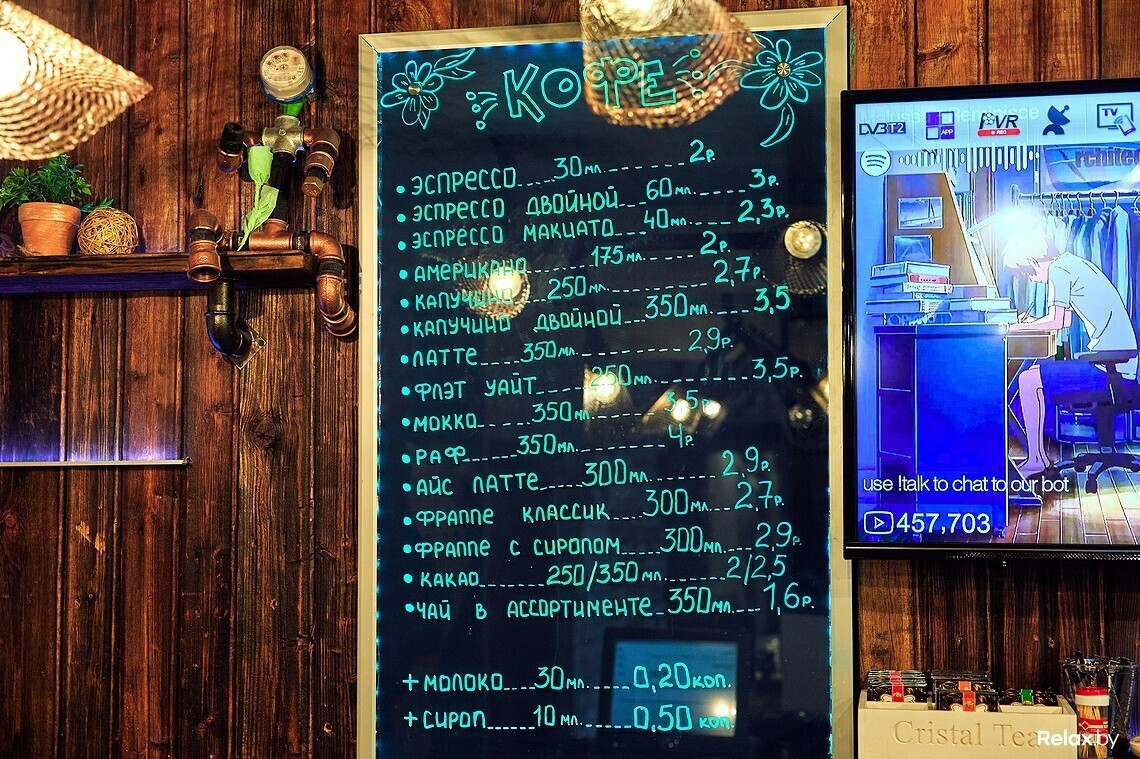 КОФЕ
• ЭСПРЕССО....30мл.----2р.
• ЭСПРЕССО ДВОЙНОЙ__60мл.____3р.
• ЭСПРЕССО МАКИАТО__40мл.___2,3р.
• АМЕРИКАНО______175мл_____2р.
• КАПУЧИНО__250мл_______2,7р.
• КАПУЧИНО ДВОЙНОЙ__350мл.___3,5
• ЛАТТЕ____350мл._________2,9р.
• ФЛЭТ УАЙТ____250мл._______3,5р.
• МОККО____350мл._____3,5р.
• РАФ_____350мл.______4р.
• АЙС ЛАТТЕ____300мл.____2,9р.
• ФРАППЕ КЛАССИК___300мл.__2,7р.
• ФРАППЕ С СИРОПОМ___300мл.__2,9р.
• КАКАО_____250/350мл._____2/2,5
• ЧАЙ В АССОРТИМЕНТЕ_350мл.__1,6р.
+МОЛОКО___30мл._____0,20коп.
+СИРОП____10мл._____0,50коп.
DVB T2 APP PVR REC TV
use !talk to chat to our bot
457,703
Cristal Tea
Relax.by